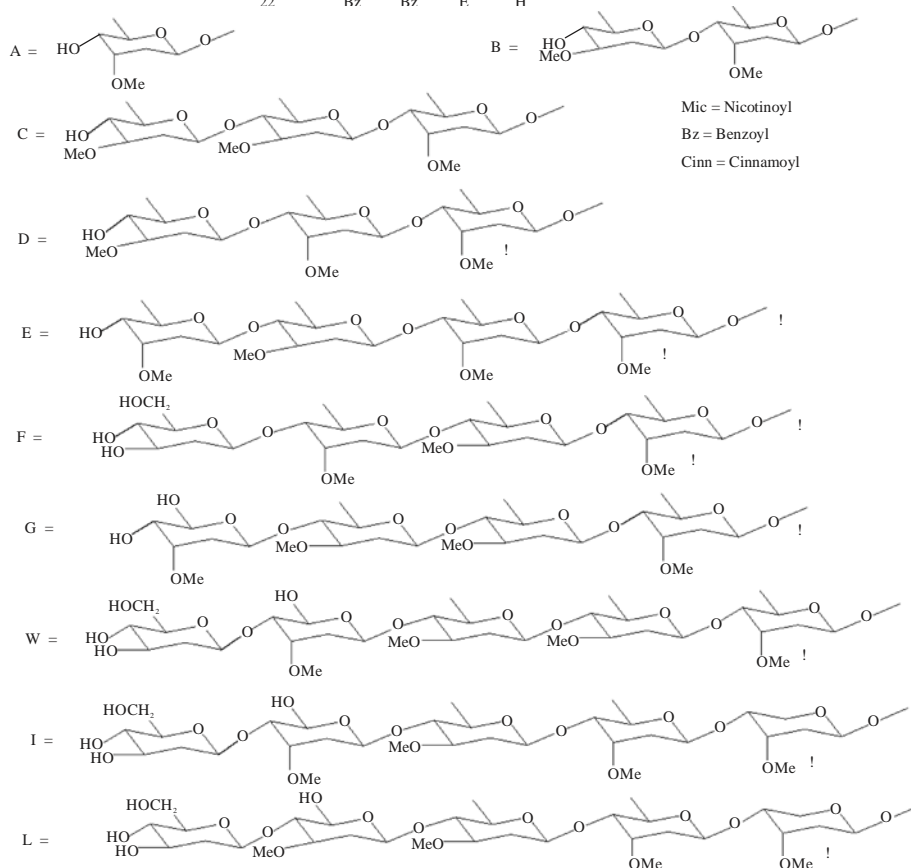 22 Bz Bz E H
A = HO O O OMe
B = HO MeO O O O O OMe
Mic = Nicotinoyl
Bz = Benzoyl
Cinn = Cinnamoyl
C = HO MeO O O MeO O O O O OMe
D = HO MeO O O O OMe O O O OMe !
E = HO O OMe O MeO O O O OMe O O O OMe ! !
F = HOCH2 HO HO O O O OMe O MeO O O O O OMe ! !
G = HO HO O OMe O MeO O O MeO O O O O OMe !
W = HOCH2 HO HO O O HO O OMe O MeO O O MeO O O O O OMe !
I = HOCH2 HO HO O O HO O OMe O MeO O O O OMe O O O OMe !
L = HOCH2 HO HO O O HO O MeO O O MeO O O O OMe O O O OMe !